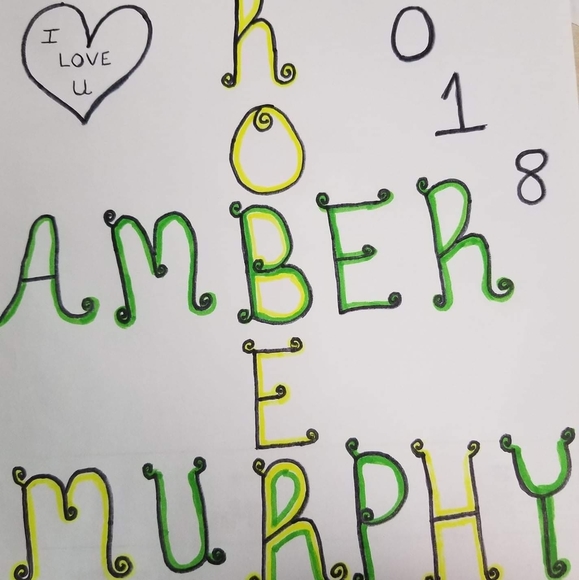 I
LOVE
U
0
1
8
ROBER
AMBER
MURPHY